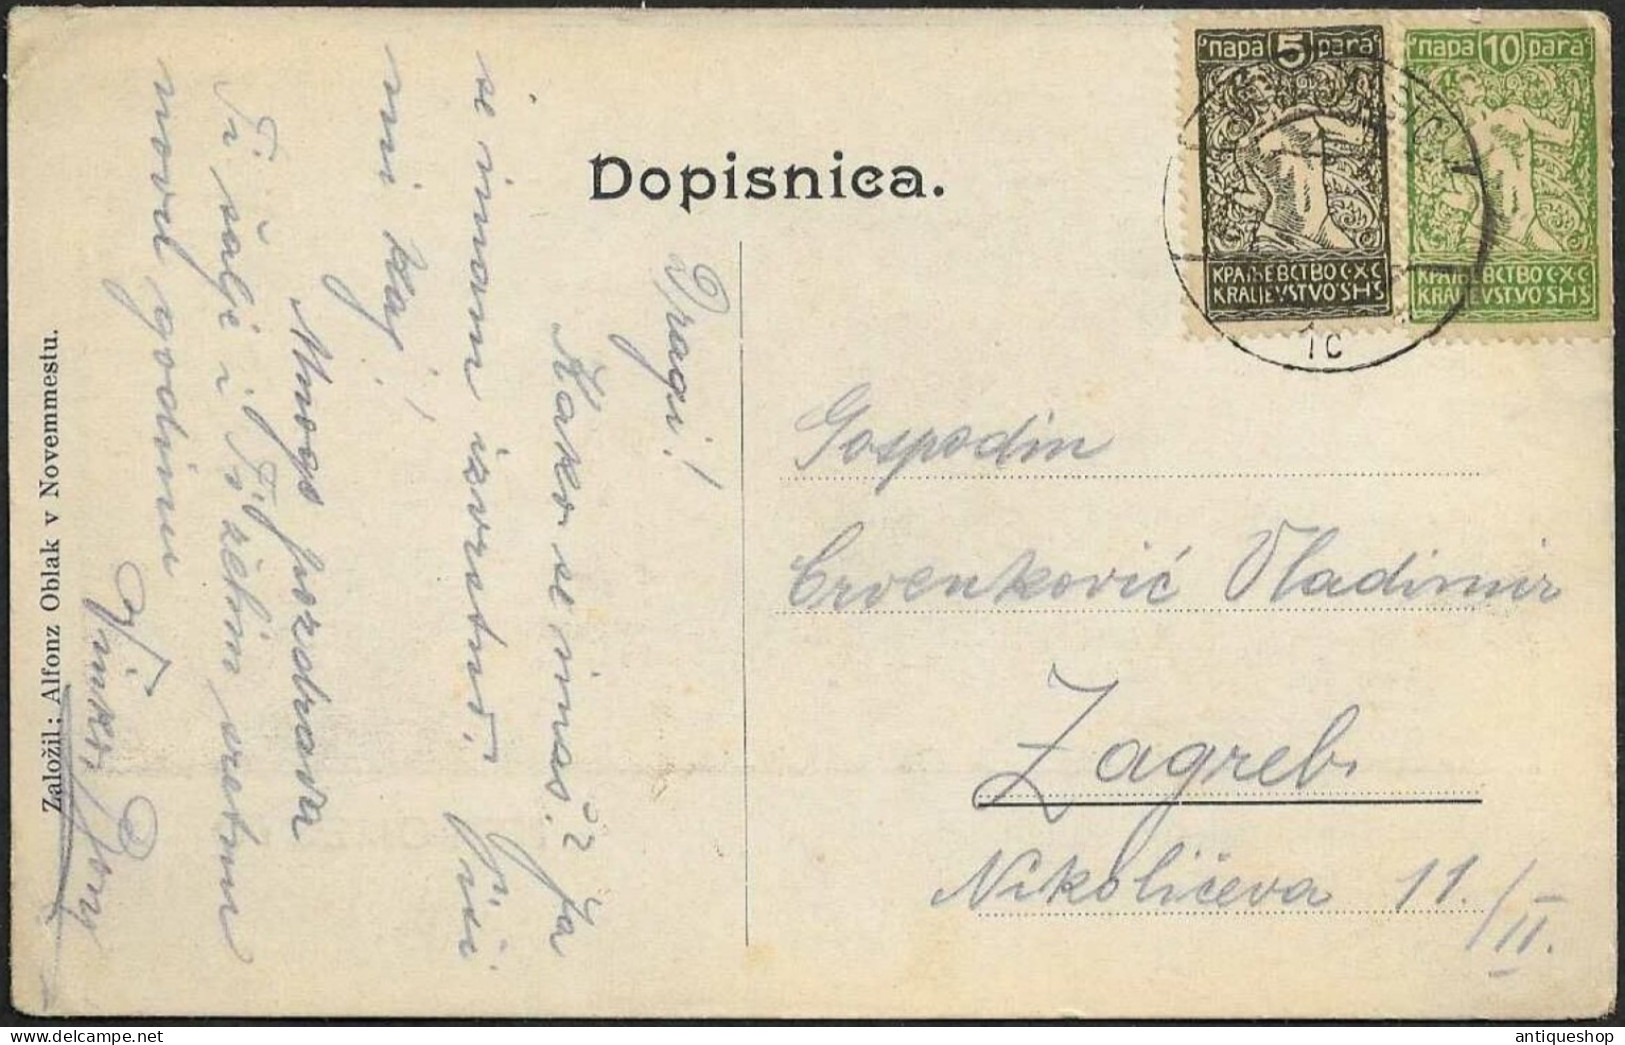 Dopisnica.
пара 5 para
КРАЉЕВСТВО С·Х·С
KRALJEVSTVO SHS
пара 10 para
КРАЉЕВСТВО С·Х·С
KRALJEVSTVO SHS
1c
Dragi!
Kako se imaš? Ja
se imam izvrstno.
mi kaj!
Mnogo pozdrava
Ti šalje i Ti želim sretnu
novu godinu
Založil: Alfonz Oblak v Novemmestu.
Gospodin
Crvenković Vladimir
Zagreb
Nikolićeva 11./II.
antiqueshop